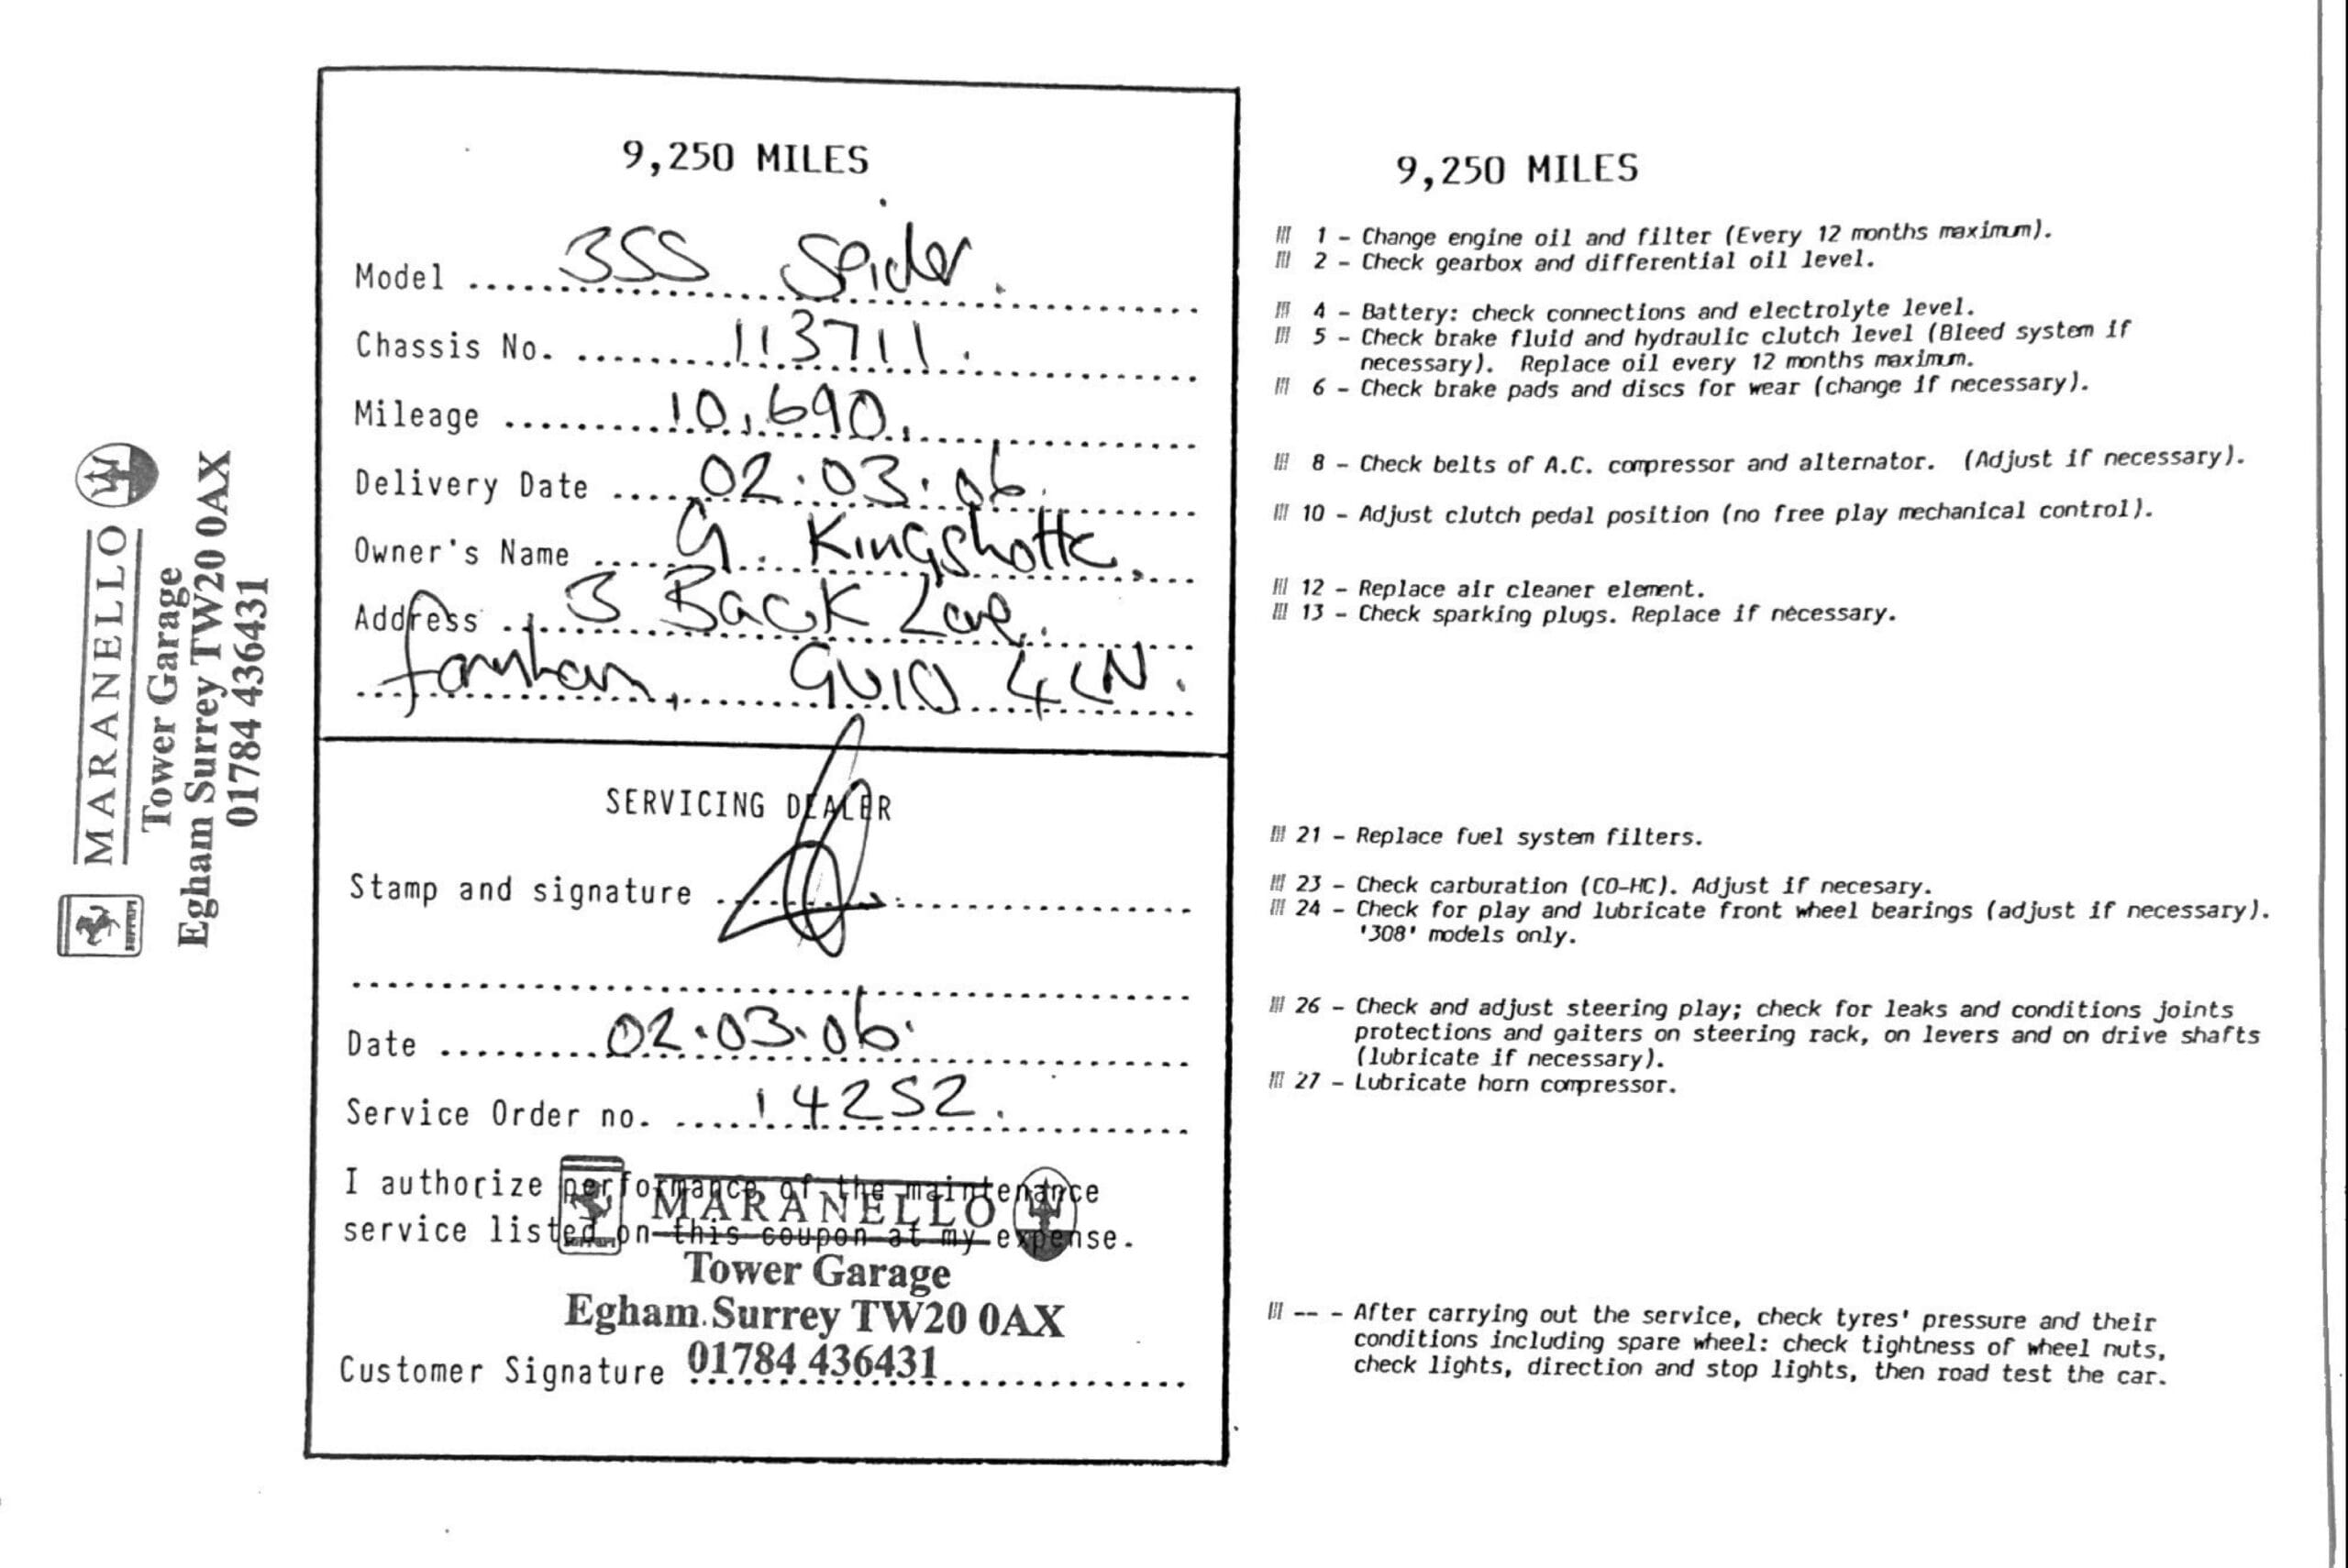 MARANELLO
Tower Garage
Egham Surrey TW20 0AX
01784 436431
Ferrari
9,250 MILES
Model 355 Spider.
Chassis No. 113711.
Mileage 10,690.
Delivery Date 02.03.06.
Owner's Name G. Kingshotte.
Address 3 Back Lane,
farnham, GU10 4LN.
SERVICING DEALER
Stamp and signature
Date 02.03.06.
Service Order no. 14252.
I authorize performance of the maintenance
service listed on this coupon at my expense.
Ferrari
MARANELLO
Tower Garage
Egham Surrey TW20 0AX
01784 436431
Customer Signature
9,250 MILES
1 - Change engine oil and filter (Every 12 months maximum).
2 - Check gearbox and differential oil level.
4 - Battery: check connections and electrolyte level.
5 - Check brake fluid and hydraulic clutch level (Bleed system if
necessary). Replace oil every 12 months maximum.
6 - Check brake pads and discs for wear (change if necessary).
8 - Check belts of A.C. compressor and alternator. (Adjust if necessary).
10 - Adjust clutch pedal position (no free play mechanical control).
12 - Replace air cleaner element.
13 - Check sparking plugs. Replace if necessary.
21 - Replace fuel system filters.
23 - Check carburation (CO-HC). Adjust if necesary.
24 - Check for play and lubricate front wheel bearings (adjust if necessary).
'308' models only.
26 - Check and adjust steering play; check for leaks and conditions joints
protections and gaiters on steering rack, on levers and on drive shafts
(lubricate if necessary).
27 - Lubricate horn compressor.
-- - After carrying out the service, check tyres' pressure and their
conditions including spare wheel: check tightness of wheel nuts,
check lights, direction and stop lights, then road test the car.